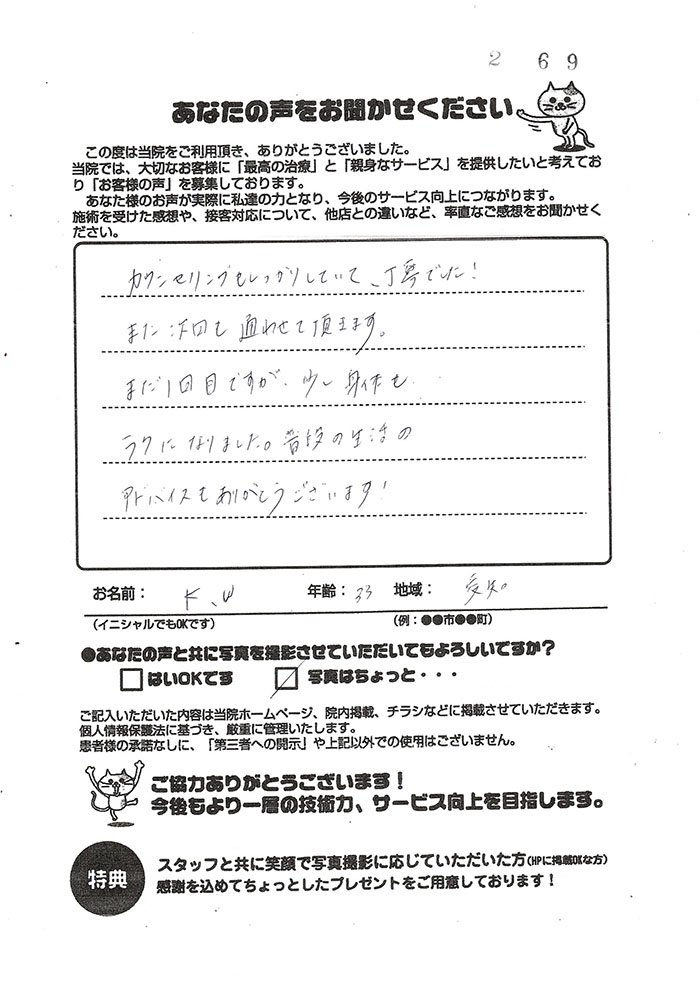 2 69
あなたの声をお聞かせください
この度は当院をご利用頂き、ありがとうございました。
当院では、大切なお客様に「最高の治療」と「親身なサービス」を提供したいと考えてお
り「お客様の声」を募集しております。
あなた様のお声が実際に私達の力となり、今後のサービス向上につながります。
施術を受けた感想や、接客対応について、他店との違いなど、率直なご感想をお聞かせく
ださい。
カウンセリングもしっかりしていて、丁寧でした!
また次回も通わせて頂きます。
まだ1回目ですが、少し身体も
ラクになりました。普段の生活の
アドバイスもありがとうございます!
お名前: K、W 年齢: 33 地域: 愛知
(イニシャルでもOKです) (例:●●市●●町)
●あなたの声と共に写真を撮影させていただいてもよろしいですか?
はいOKです 写真はちょっと・・・
ご記入いただいた内容は当院ホームページ、院内掲載、チラシなどに掲載させていただきます。
個人情報保護法に基づき、厳重に管理いたします。
患者様の承諾なしに、「第三者への開示」や上記以外での使用はございません。
ご協力ありがとうございます!
今後もより一層の技術力、サービス向上を目指します。
特典
スタッフと共に笑顔で写真撮影に応じていただいた方(HPに掲載OKな方)
感謝を込めてちょっとしたプレゼントをご用意しております!